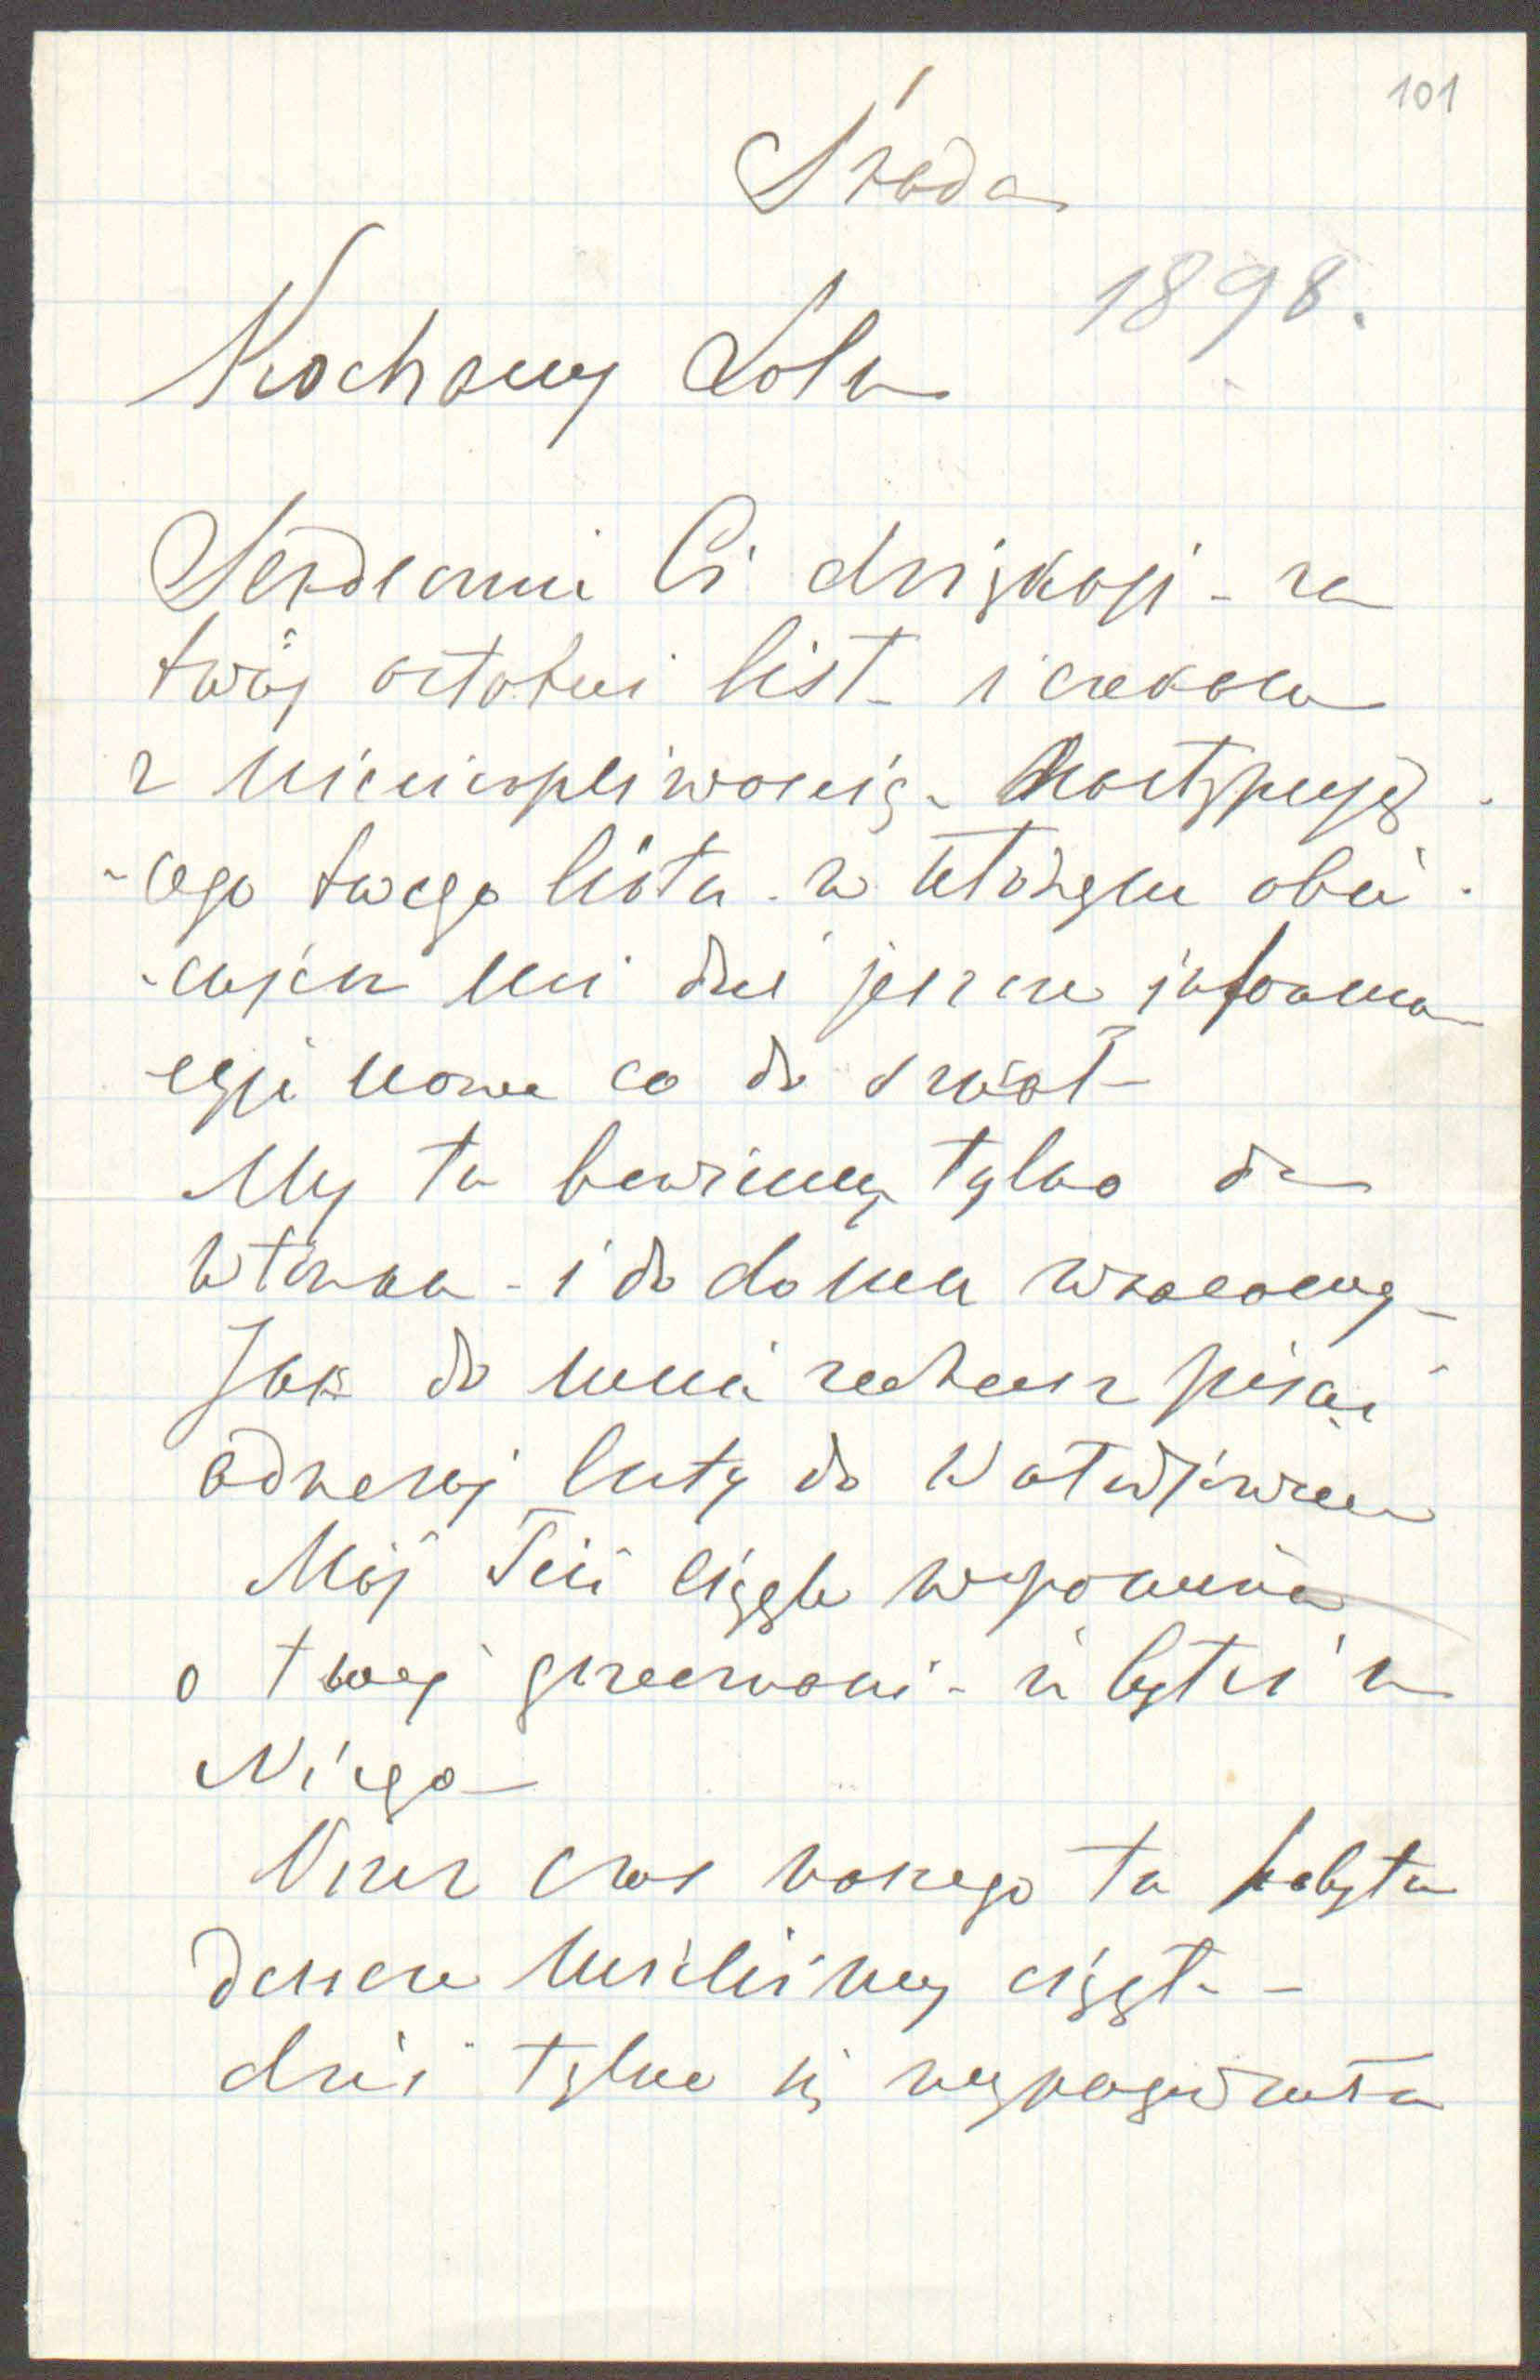 101
Środa
1898.
Kochany Lolu
Serdecznie Ci dziękuję - za
twój ostatni list - i czekam
z niecierpliwością - następują
-cego twego listu - w którym obie
-cujesz mi dać jeszcze informa
-cyje nowe co do
My tu bawimy tylko do
wtorku - i do domu wracamy -
Jak do mnie zechcesz pisać
adresuj listy do
Mój Teść ciągle wspomina
o twej grzeczności - iż byłeś u
Niego -
Przez czas naszego tu pobytu
deszcze mieliśmy ciągle -
dziś tylko się wypogodziło